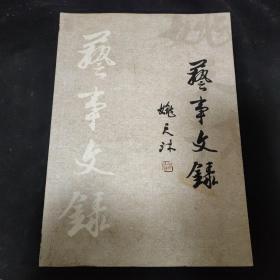 藝事文錄
姚天沐
藝事文錄